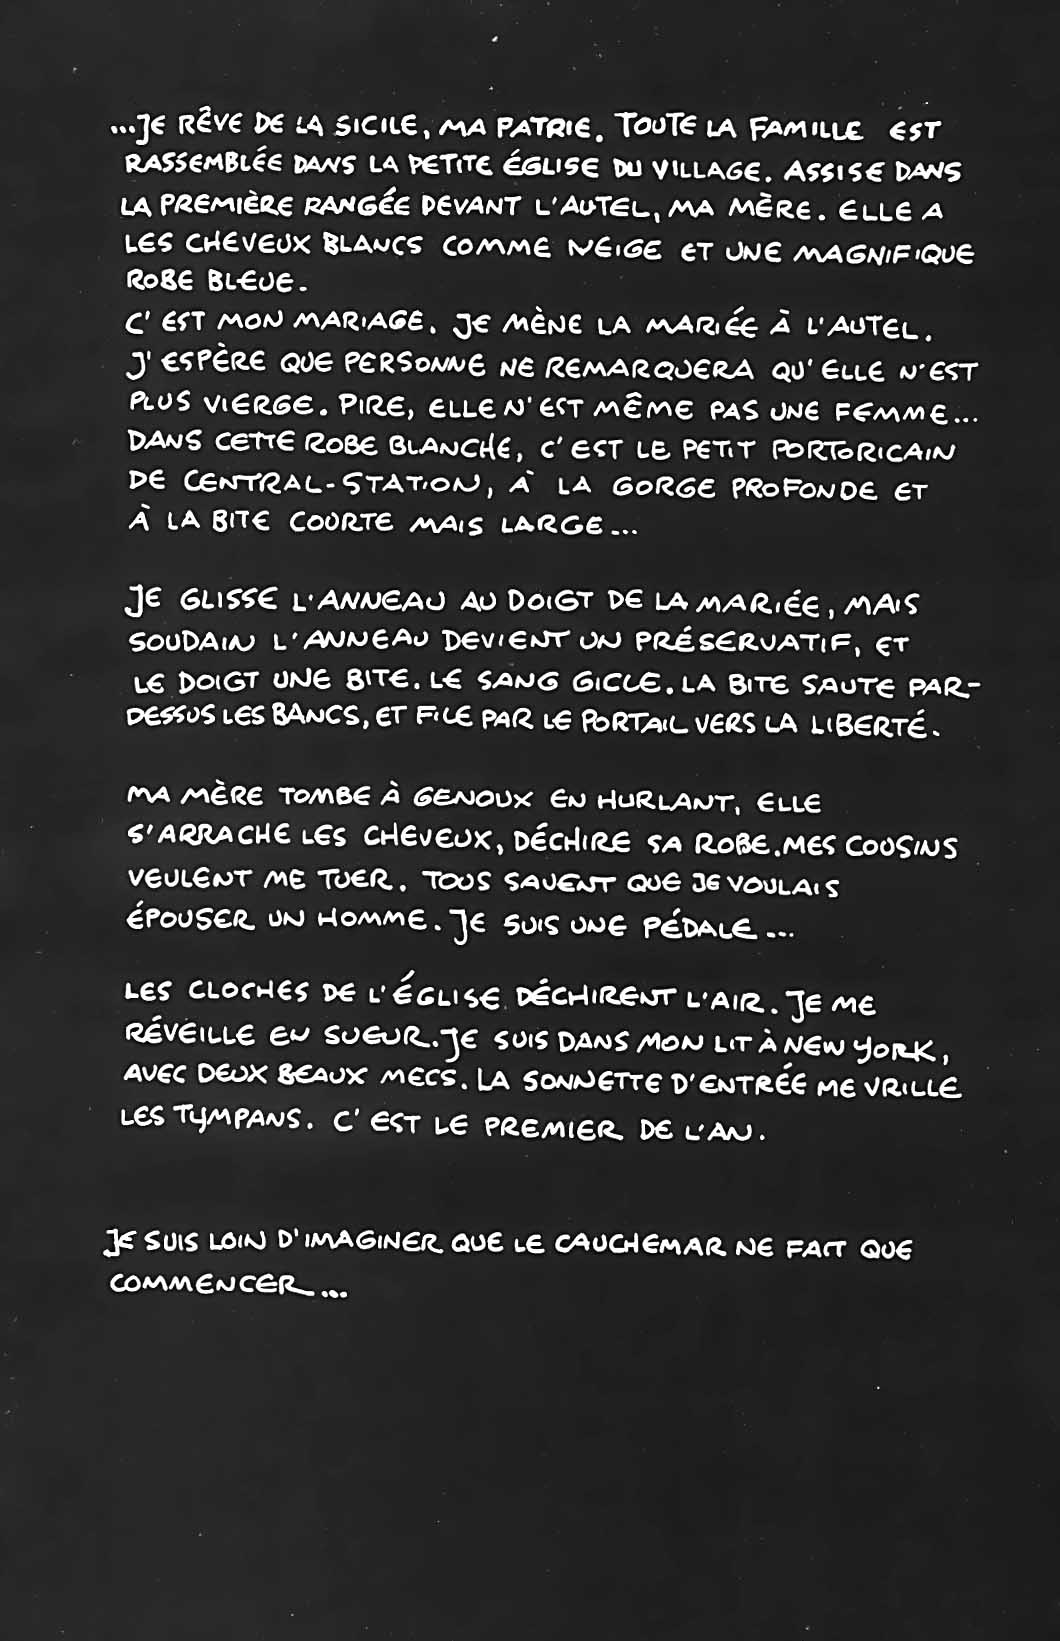 ...JE RÊVE DE LA SICILE, MA PATRIE. TOUTE LA FAMILLE EST
RASSEMBLÉE DANS LA PETITE ÉGLISE DU VILLAGE. ASSISE DANS
LA PREMIÈRE RANGÉE DEVANT L'AUTEL, MA MÈRE. ELLE A
LES CHEVEUX BLANCS COMME NEIGE ET UNE MAGNIFIQUE
ROBE BLEUE.
C'EST MON MARIAGE. JE MÈNE LA MARIÉE À L'AUTEL.
J'ESPÈRE QUE PERSONNE NE REMARQUERA QU'ELLE N'EST
PLUS VIERGE. PIRE, ELLE N'EST MÊME PAS UNE FEMME...
DANS CETTE ROBE BLANCHE, C'EST LE PETIT PORTORICAIN
DE CENTRAL-STATION, À LA GORGE PROFONDE ET
À LA BITE COURTE MAIS LARGE...
JE GLISSE L'ANNEAU AU DOIGT DE LA MARIÉE, MAIS
SOUDAIN L'ANNEAU DEVIENT UN PRÉSERVATIF, ET
LE DOIGT UNE BITE. LE SANG GICLE. LA BITE SAUTE PAR-
DESSUS LES BANCS, ET FILE PAR LE PORTAIL VERS LA LIBERTÉ.
MA MÈRE TOMBE À GENOUX EN HURLANT, ELLE
S'ARRACHE LES CHEVEUX, DÉCHIRE SA ROBE. MES COUSINS
VEULENT ME TUER. TOUS SAVENT QUE JE VOULAIS
ÉPOUSER UN HOMME. JE SUIS UNE PÉDALE...
LES CLOCHES DE L'ÉGLISE DÉCHIRENT L'AIR. JE ME
RÉVEILLE EN SUEUR. JE SUIS DANS MON LIT À NEW YORK,
AVEC DEUX BEAUX MECS. LA SONNETTE D'ENTRÉE ME VRILLE
LES TYMPANS. C'EST LE PREMIER DE L'AN.
JE SUIS LOIN D'IMAGINER QUE LE CAUCHEMAR NE FAIT QUE
COMMENCER...